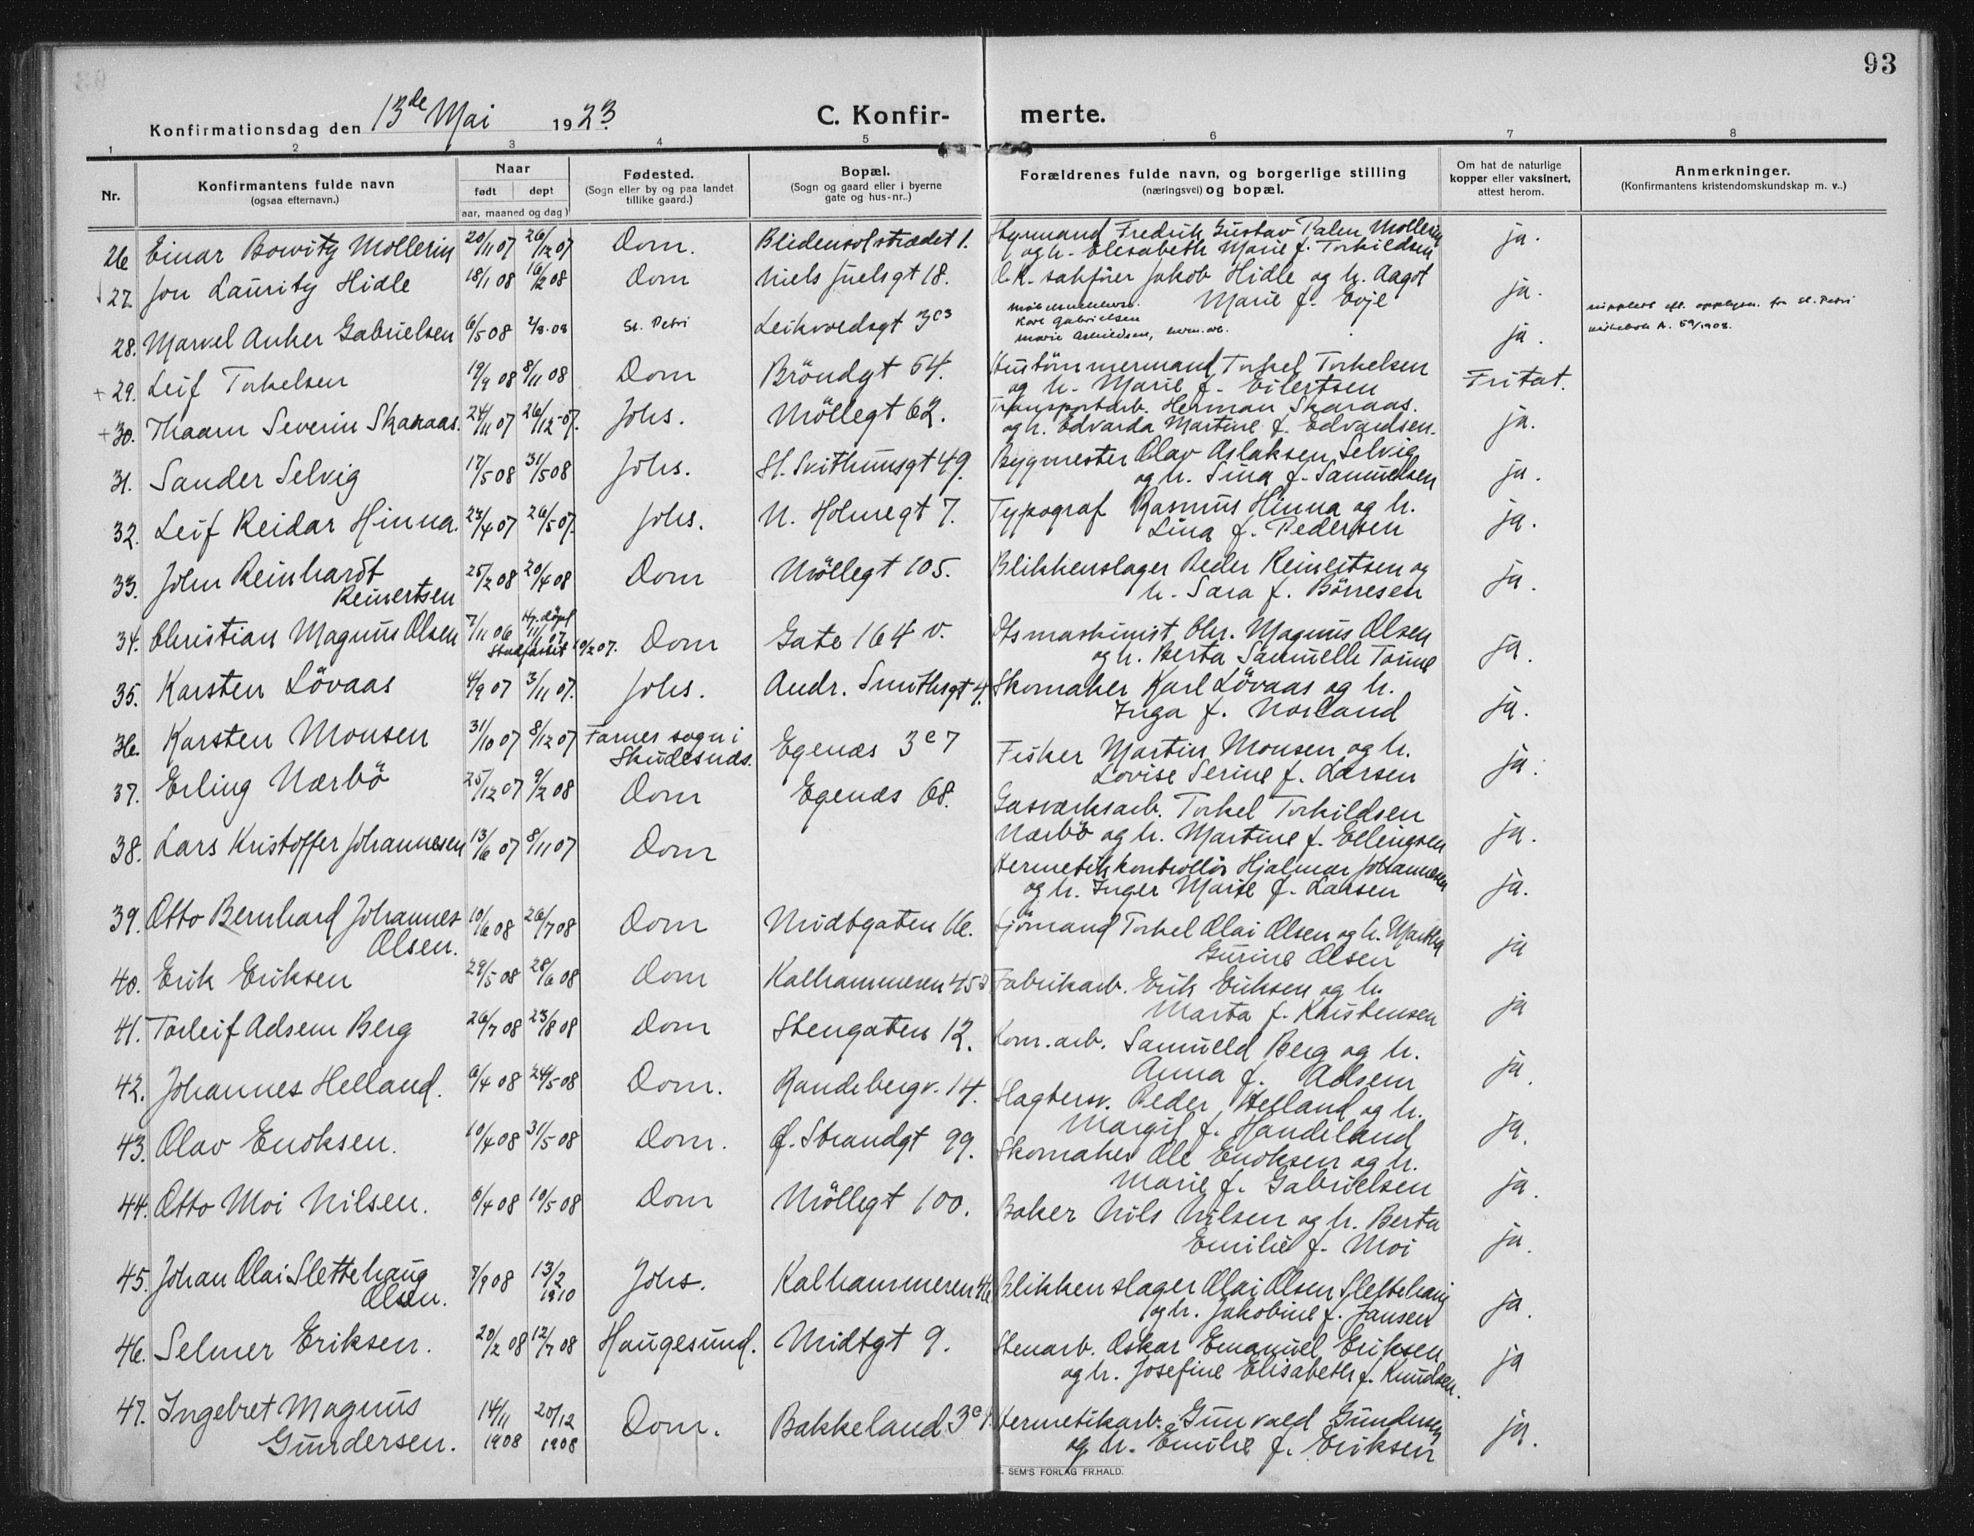 93
Konfirmationsdag den 13de Mai 1923.
C. Konfir- merte.
1 2 3 4 5 6 7 8
Nr.
Konfirmantens fulde navn
(ogsaa efternavn.)
Naar
født døpt
aar, maaned og dag)
Fødested.
(Sogn eller by og paa landet
tillike gaard.)
Bopæl.
(Sogn og gaard eller i byerne
gate og hus-nr..)
Forældrenes fulde navn, og borgerlige stilling
(næringsvei) og bopæl.
Om hat de naturlige
kopper eller vaksinert,
attest herom.
Anmerkninger.
(Konfirmantens kristendomskundskap m. v..)
26 Einar Bowitz Mollerin 20/11 07 26/12 07 Dom. Blidensolstrædet 1. Styrmand Fredrik Gustav Palm Mollerin ja.
og h. Elisabeth Marie f. Torkildsen
27. Jon Lauritz Hidle 18/1 08 16/2 08 Dom Niels Juelsgt 18. O.R. sakfører Jakob Hidle og h. Aagot ja.
Marie f. Evje
28. Marvel Anker Gabrielsen 6/5 08 2/8.08 St. Petri Leikvedsgt 3c3 ja.
Karl Gabrielsen
Marie
+ 29. Leif Torkelsen 19/9 08 8/11 08 Dom Bröndgt 64. Hustömmermand Torkel Torkelsen Fritat.
og h. Marie f. Eilertsen
+ 30. Thaarn Severin Skaraas. 24/11 07 26/12-07. Johs. Möllegt 62. Transportarb. Herman Skaraas. ja.
og h. Edvarda Martine f. Edvardsen.
31. Sander Selvig 17/5 08 31/5 08 Johs. St. Svithunsgt 49. Bygmester Olav Aslaksen Selvig ja.
og h. Sina f. Samuelsen
32. Leif Reidar Hinna. 23/4 07 26/5 07. Johs. N. Holmegt 7. Typograf Rasmus Hinna og h. ja.
Lina f. Pedersen
33. John Reinhardt 25/2 08 20/4 08 Dom Möllegt 105. Blikkenslager Peder Reinertsen og ja.
Reinertsen h. Sara f. Börresen
34. Christian Magnus Olsen 7/11 06 Hj. döpt 11/1 07. Dom Gate 164 v. Chr. Magnus Olsen ja.
Stadfæstet 10/2 07. og h. Berta
35. Karsten Lövaas 4/9 07 3/11 07. Johs. Andr. Smithsgt 4. Skomaker Karl Lövaas og h. ja.
Inga f. Norland
36. Karsten Monsen 31/10 07 8/12 07 Farnes sogn i Egenæs 3e7 Fisker Martin Monsen og h. ja.
Skudesnæs. Lovise Serine f. Larsen
37. Erling Nærbö 25/12 07 9/2 08 Dom Egenæs 68. Gasværksarb. Torkel Torkildsen ja.
Nærbö og h. Martine f. Ellingsen
38. Lars Kristoffer Johannesen 13/6 07 8/11 07 Dom Hermetikkontrollör Hjalmar Johannesen ja.
og h. Inger Marie f. Larsen
39. Otto Bernhard Johannes 10/6 08 26/7 08 Dom Midtgaten 16. Sjömand Torkel Olai Olsen og h. Martha ja
Olsen. Gurine Olsen
40. Erik Eriksen 29/5 08 28/6 08 Dom Kalhammeren 45 Fabrikarb. Erik Eriksen og h. ja
Marta f. Kristensen
41. Torleif Adsem Berg 26/7 08 23/8 08 Dom Stengaten 12. Kom. arb. Samueld Berg og h. ja.
Anna f. Adsem
42. Johannes Helland. 6/4 08 24/5 08 Dom. Randebergv. 14. Slagtersv. Peder Helland og h. ja.
Margit f. Handeland
43. Olav Enoksen. 10/4 08 31/5 08 Dom. Ø. Strandgt 99. Skomaker Ole Enoksen og h. ja.
Marie f. Gabrielsen
44. Otto Moi Nilsen. 6/4 08 10/5 08 Dom Möllegt 100. Baker Nils Nilsen og h. Berta ja.
Emilie f. Moi
45. Johan Olai Slettehaug 7/9 08 13/2 1910 Johs. Kalhammeren Blikkenslager Olai Olsen Slettehaug ja.
Olsen. og h. Jakobine f. Jansen
46. Selmer Eriksen. 20/2 08 12/7 08 Haugesund. Midtgt 9. Stenarb. Oskar Emanuel Eriksen ja
og h. Josefine Elisabeth f. Knudsen.
47. Ingebret Magnus 14/11 1908 20/12 1908 Dom. Bakkeland Hermetikarb. Gunvald Gundersen ja.
Gundersen. og h. Emilie f. Eriksen
SEM'S FORLAG FR.HALD.